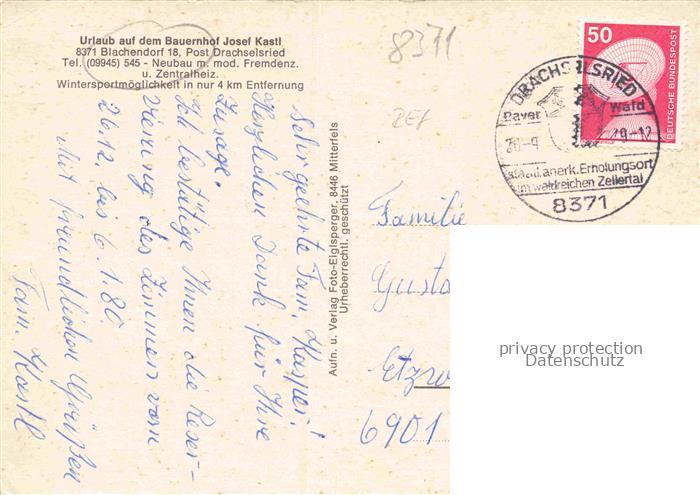 Urlaub auf dem Bauernhof Josef Kastl
8371 Blachendorf 18, Post Drachselsried
Tel. (09945) 545 - Neubau m. mod. Fremdenz.
u. Zentralheiz.
Wintersportmöglichkeit in nur 4 km Entfernung
8371
Sehr geehrte Fam. Kasper!
Herzlichen Dank für Ihre
Zusage.
Ich bestätige Ihnen die Reser-
vierung des Zimmers vom
26.12. bis 6.1.80.
Mit freundlichen Grüßen
Fam. Kastl
Aufn. u. Verlag Foto-Eiglsperger, 8446 Mitterfels
Urheberrechtl. geschützt
50
DEUTSCHE BUNDESPOST
DRACHSELSRIED
Bayer. Wald
staatl. anerk. Erholungsort
im waldreichen Zellertal
8371
Familie
Gusta
Etzw
6901
privacy protection
Datenschutz